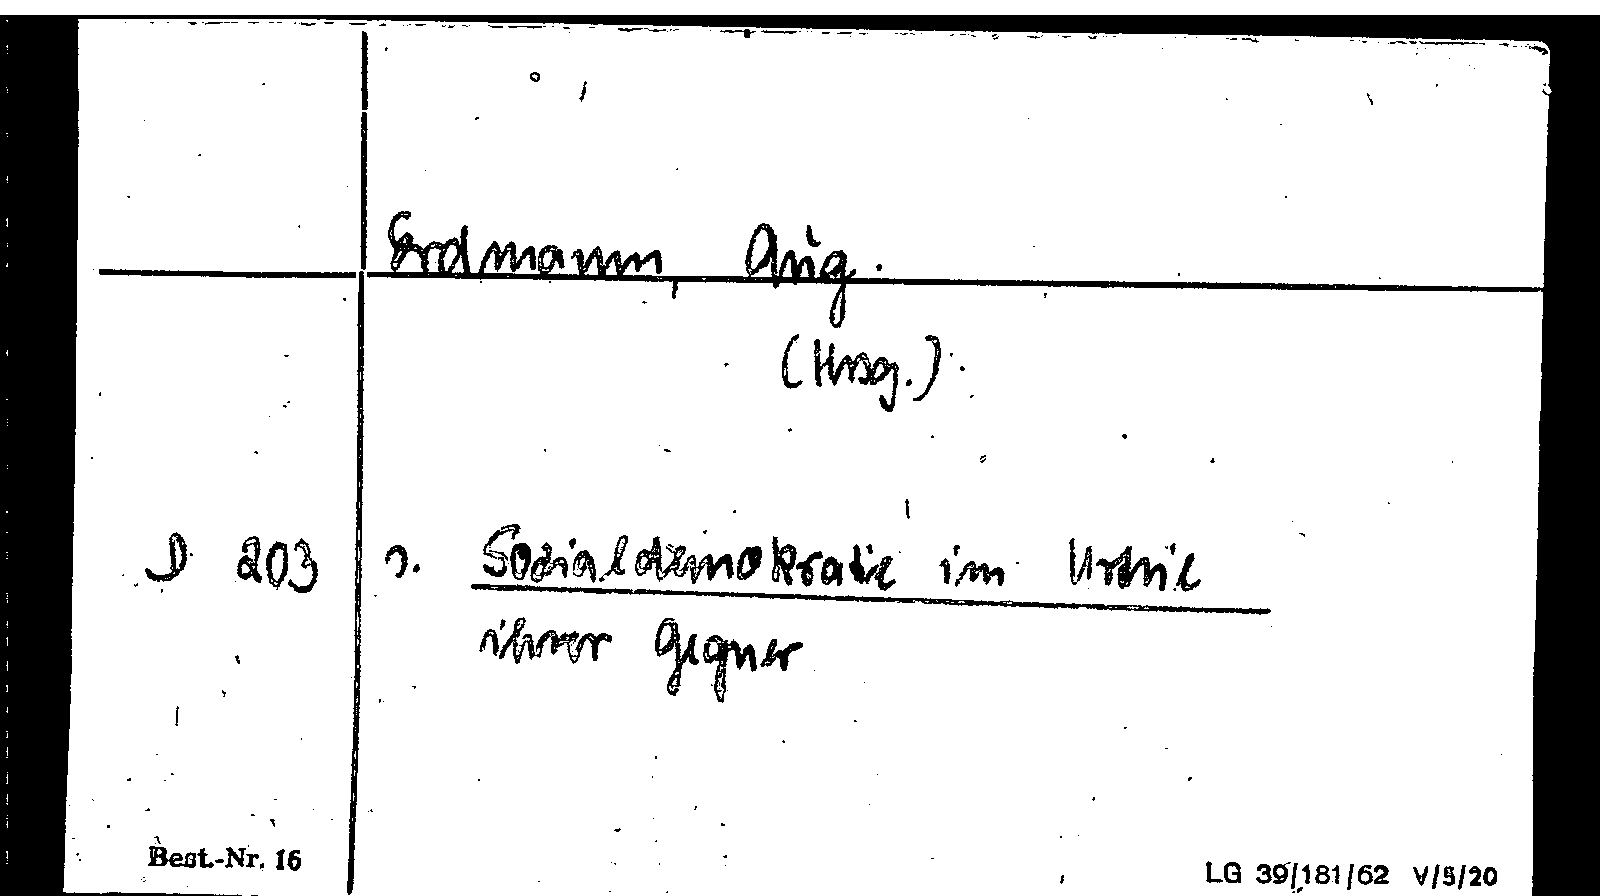 Erdmann, Aug.
(Hrsg.)
D 203 s. Sozialdemokratie im Urteile
ihrer Gegner
Best.-Nr. 16
LG 39/181/62 V/5/20